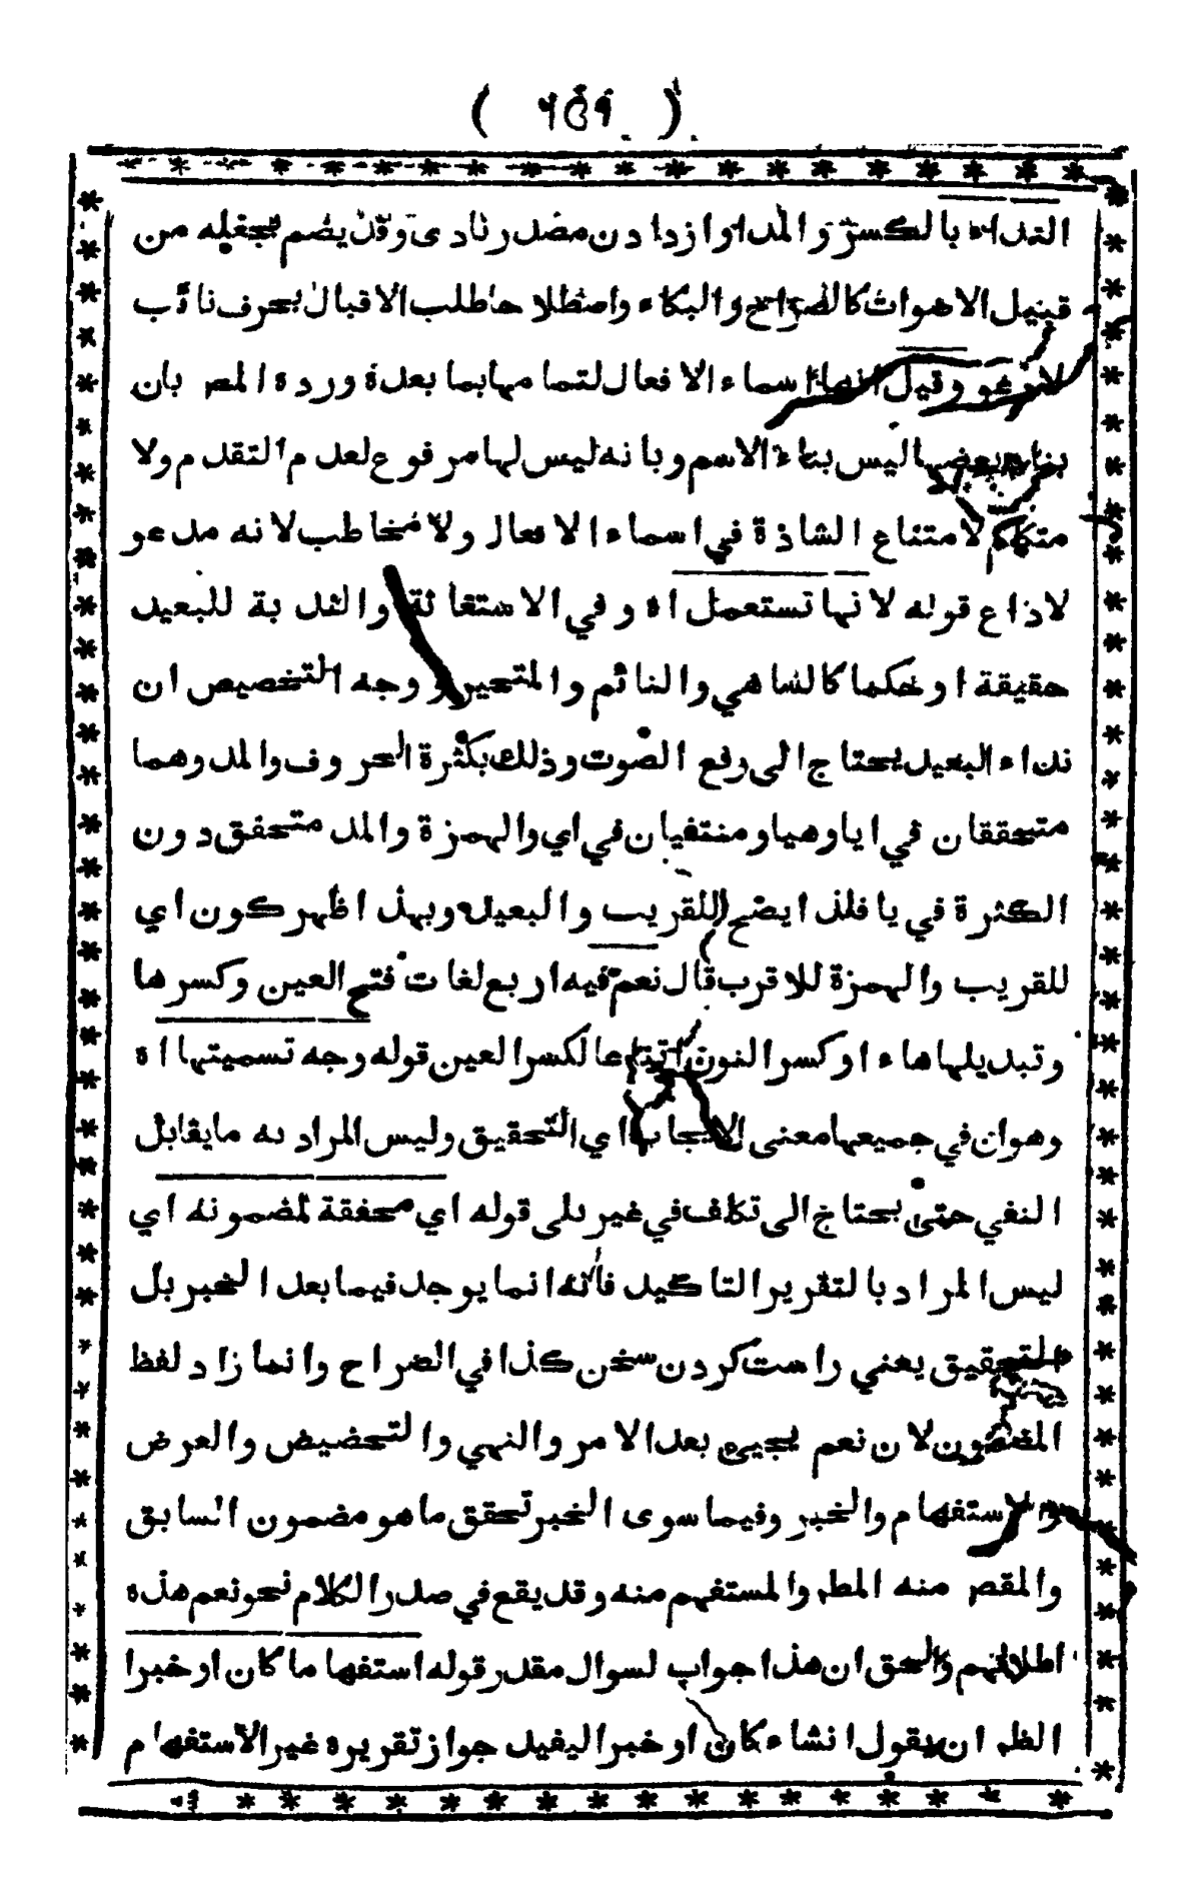 ( ٦٥٩ )
النداء بالكسر والمد اواز دادن مصدر نادى وقد يضم بجعله من
قبيل الاصوات كالصراخ والبكاء واصطلاحا طلب الاقبال بحرف نائب
لادعو وقيل انها اسماء الافعال لتمامها بما بعدة ورده المص بان
بناء بعضها ليس بناء الاسم وبانه ليس لها مرفوع لعدم التقدم ولا
متكلم لامتناع الشاذة في اسماء الافعال ولا مخاطب لانه مدعو
لاداع قوله لانها تستعمل اه وفي الاستغاثة والندبة للبعيد
حقيقة او حكما كالساهي والنائم والمتحير ووجه التخصيص ان
نداء البعيد يحتاج الى رفع الصوت وذلك بكثرة الحروف والمد وهما
متحققان في ايا وهيا ومنتفيان في اي والهمزة والمد متحقق دون
الكثرة في يا فلذا يصح للقريب والبعيد وبهذا ظهر كون اي
للقريب والهمزة للاقرب قال نعم فيه اربع لغات فتح العين وكسرها
وتبديلها هاء او كسر النون اتباعا لكسر العين قوله وجه تسميتها اه
وهو ان في جميعها معنى الايجاب اي التحقيق وليس المراد به مايقابل
النفي حتى يحتاج الى تكلف في غير بلى قوله اي محققة لمضمونه اي
ليس المراد بالتقرير التاكيد فانه انما يوجد فيما بعد الخبر بل
التحقيق يعني راست كردن سخن كذا في الصراح وانما زاد لفظ
المضمون لان نعم يجيء بعد الامر والنهي والتحضيض والعرض
والاستفهام والخبر وفيما سوى الخبر تحقق ماهو مضمون السابق
والمقصر منه المطر والمستفهم منه وقد يقع في صدر الكلام نحو نعم هذه
اطلالهم والحق ان هذا جواب لسوال مقدر قوله استفهاما كان او خبرا
الظم ان يقول انشاء كان او خبرا ليفيد جواز تقريره غير الاستفهام